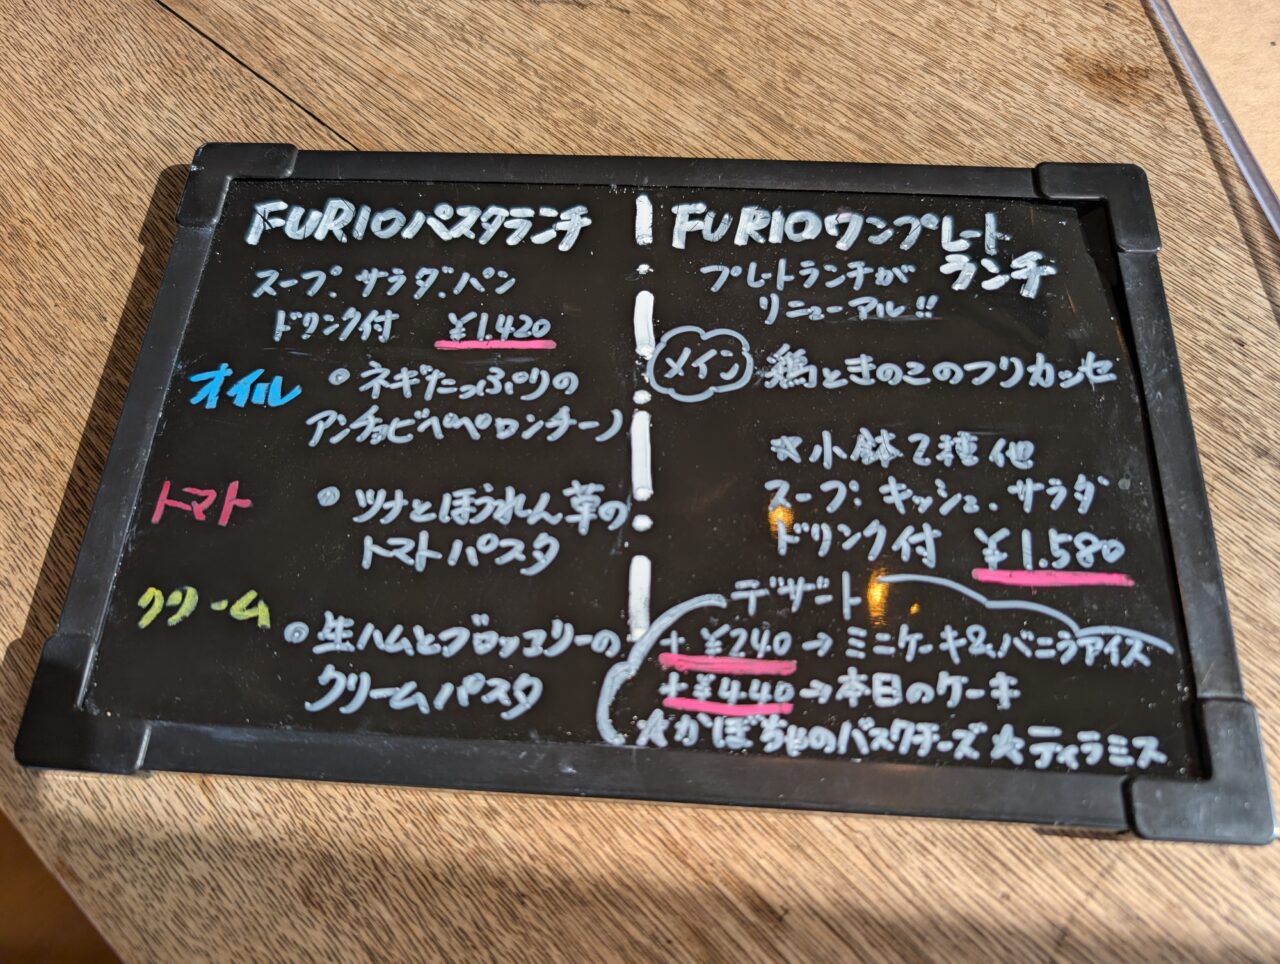 FURIOパスタランチ
スープ、サラダ、パン
ドリンク付 ¥1,420
オイル ●ネギたっぷりの
アンチョビペペロンチーノ
トマト ●ツナとほうれん草の
トマトパスタ
クリーム ●生ハムとブロッコリーの
クリームパスタ
FURIOワンプレート
ランチ
プレートランチが
リニューアル!!
メイン 鶏ときのこのフリカッセ
☆小鉢2種他
スープ、キッシュ、サラダ
ドリンク付 ¥1,580
デザート
+¥240→ミニケーキ&バニラアイス
+¥440→本日のケーキ
☆かぼちゃのバスクチーズ ☆ティラミス